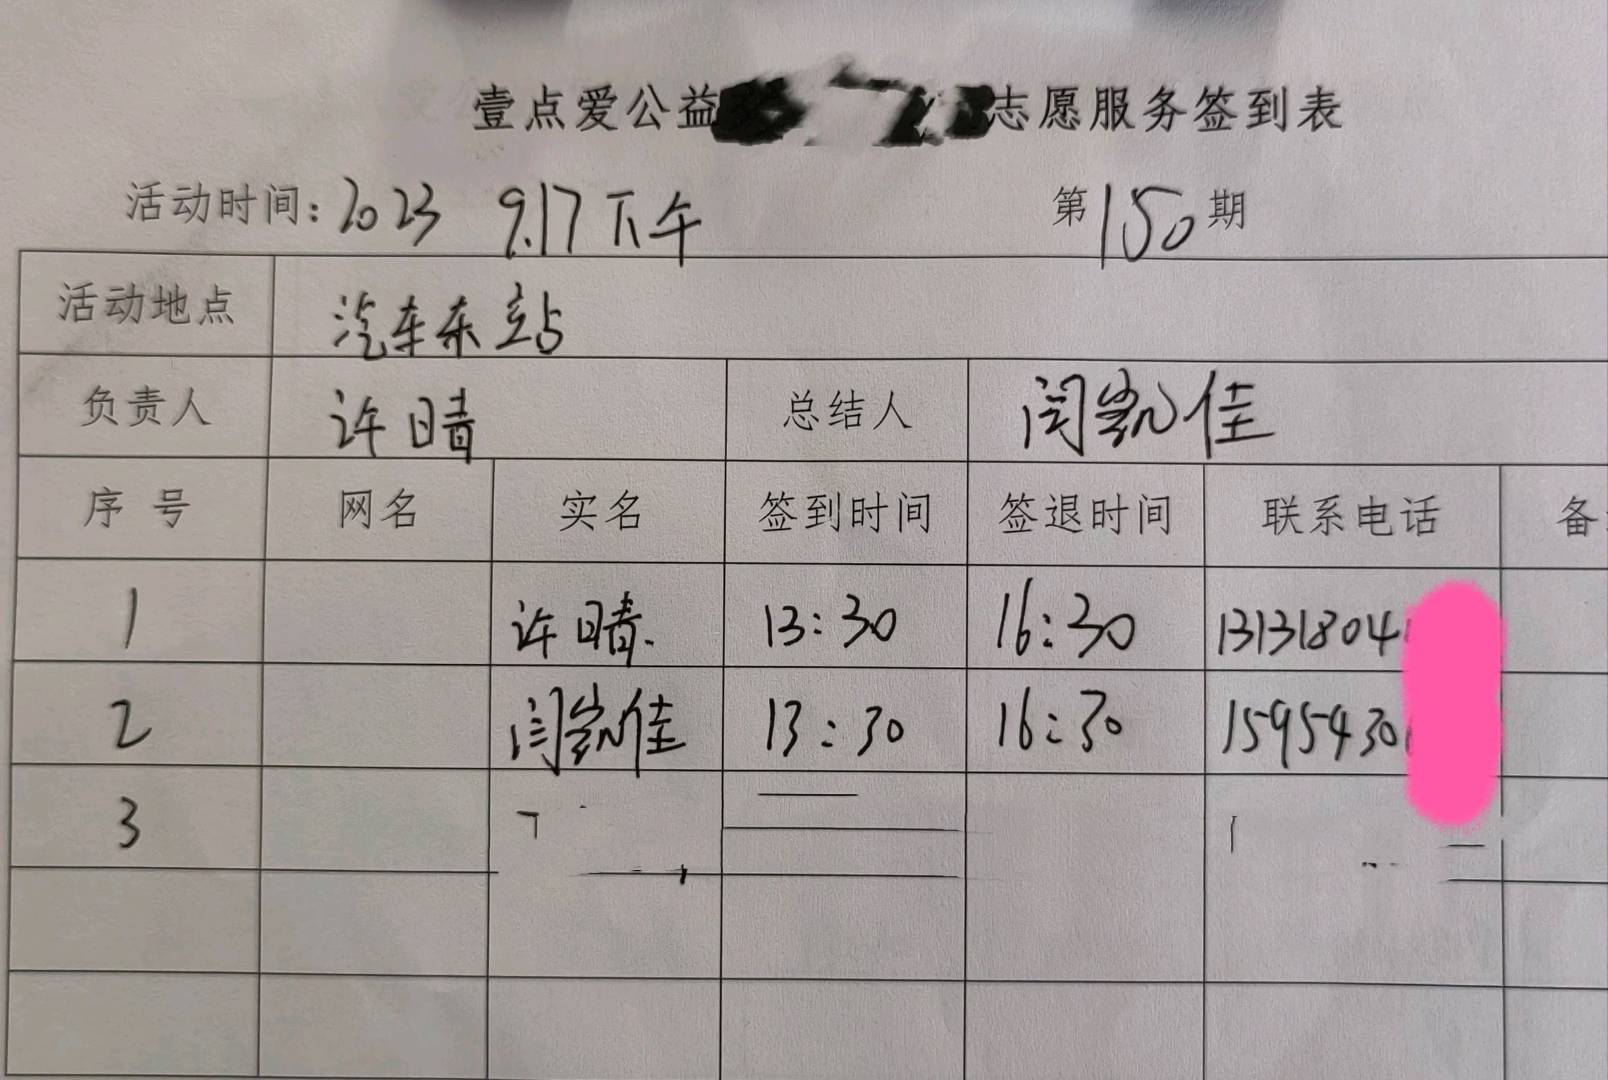 壹点爱公益 志愿服务签到表
活动时间: 2023 9.17下午 第150期
活动地点 汽车东站
负责人 许晴 总结人 闫凯佳
序号 网名 实名 签到时间 签退时间 联系电话 备
1 许晴. 13:30 16:30 13131804
2 闫凯佳 13:30 16:30 1595430
3